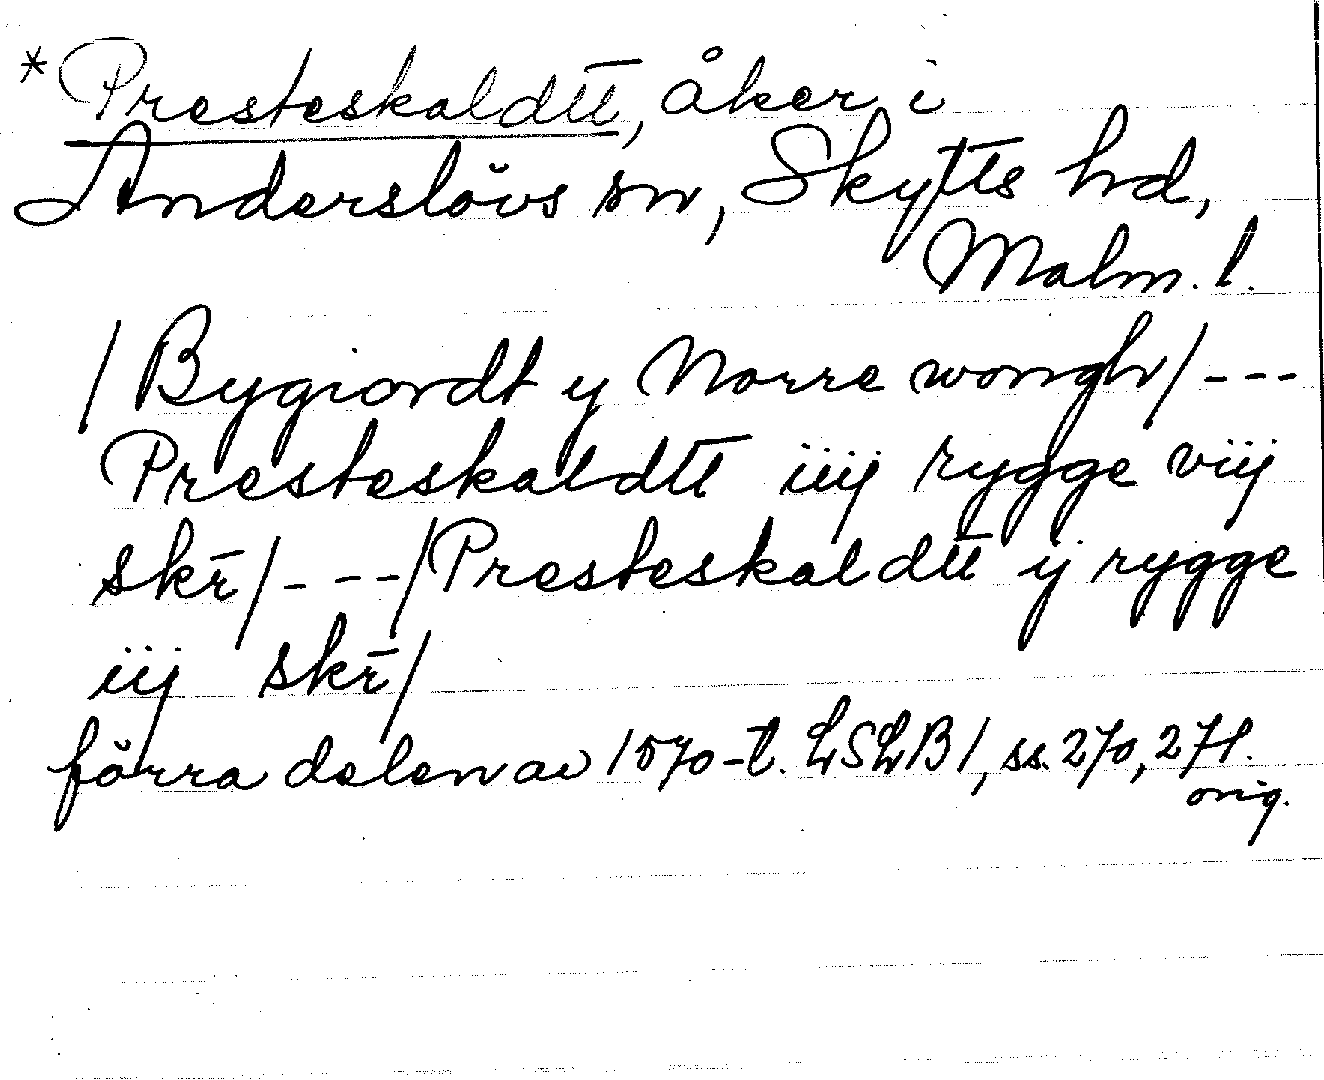 *Presteskaldtt, åker i
Anderslövs sn, Skytts hd,
Malm. l.
/Bygiordt y Norre wongh/---
Presteskaldtt iiij rygge viij
skr̄/----/Presteskaldtt ij rygge
iij skr̄/
förra delen av 1570-t. LSLB1, ss. 270, 271.
orig.